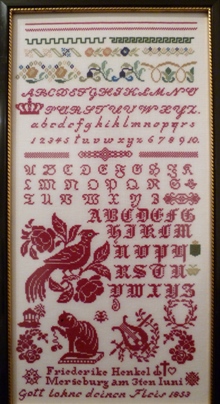 ABCDEFGHIKLMNO
PQRSTUVWXYZ.
abcdefghiklmnopqrs
12345tuvwxyz678910.
ABCDEFGHIJK
LMNOPQRS
TUVWXYZ
ABCDEFG
HIKLM
NOPQ
RSTU
VWXYZ
Friederike Henkel d
Merseburg am 3ten Iuni
Gott lohne deinen Fleis 1853